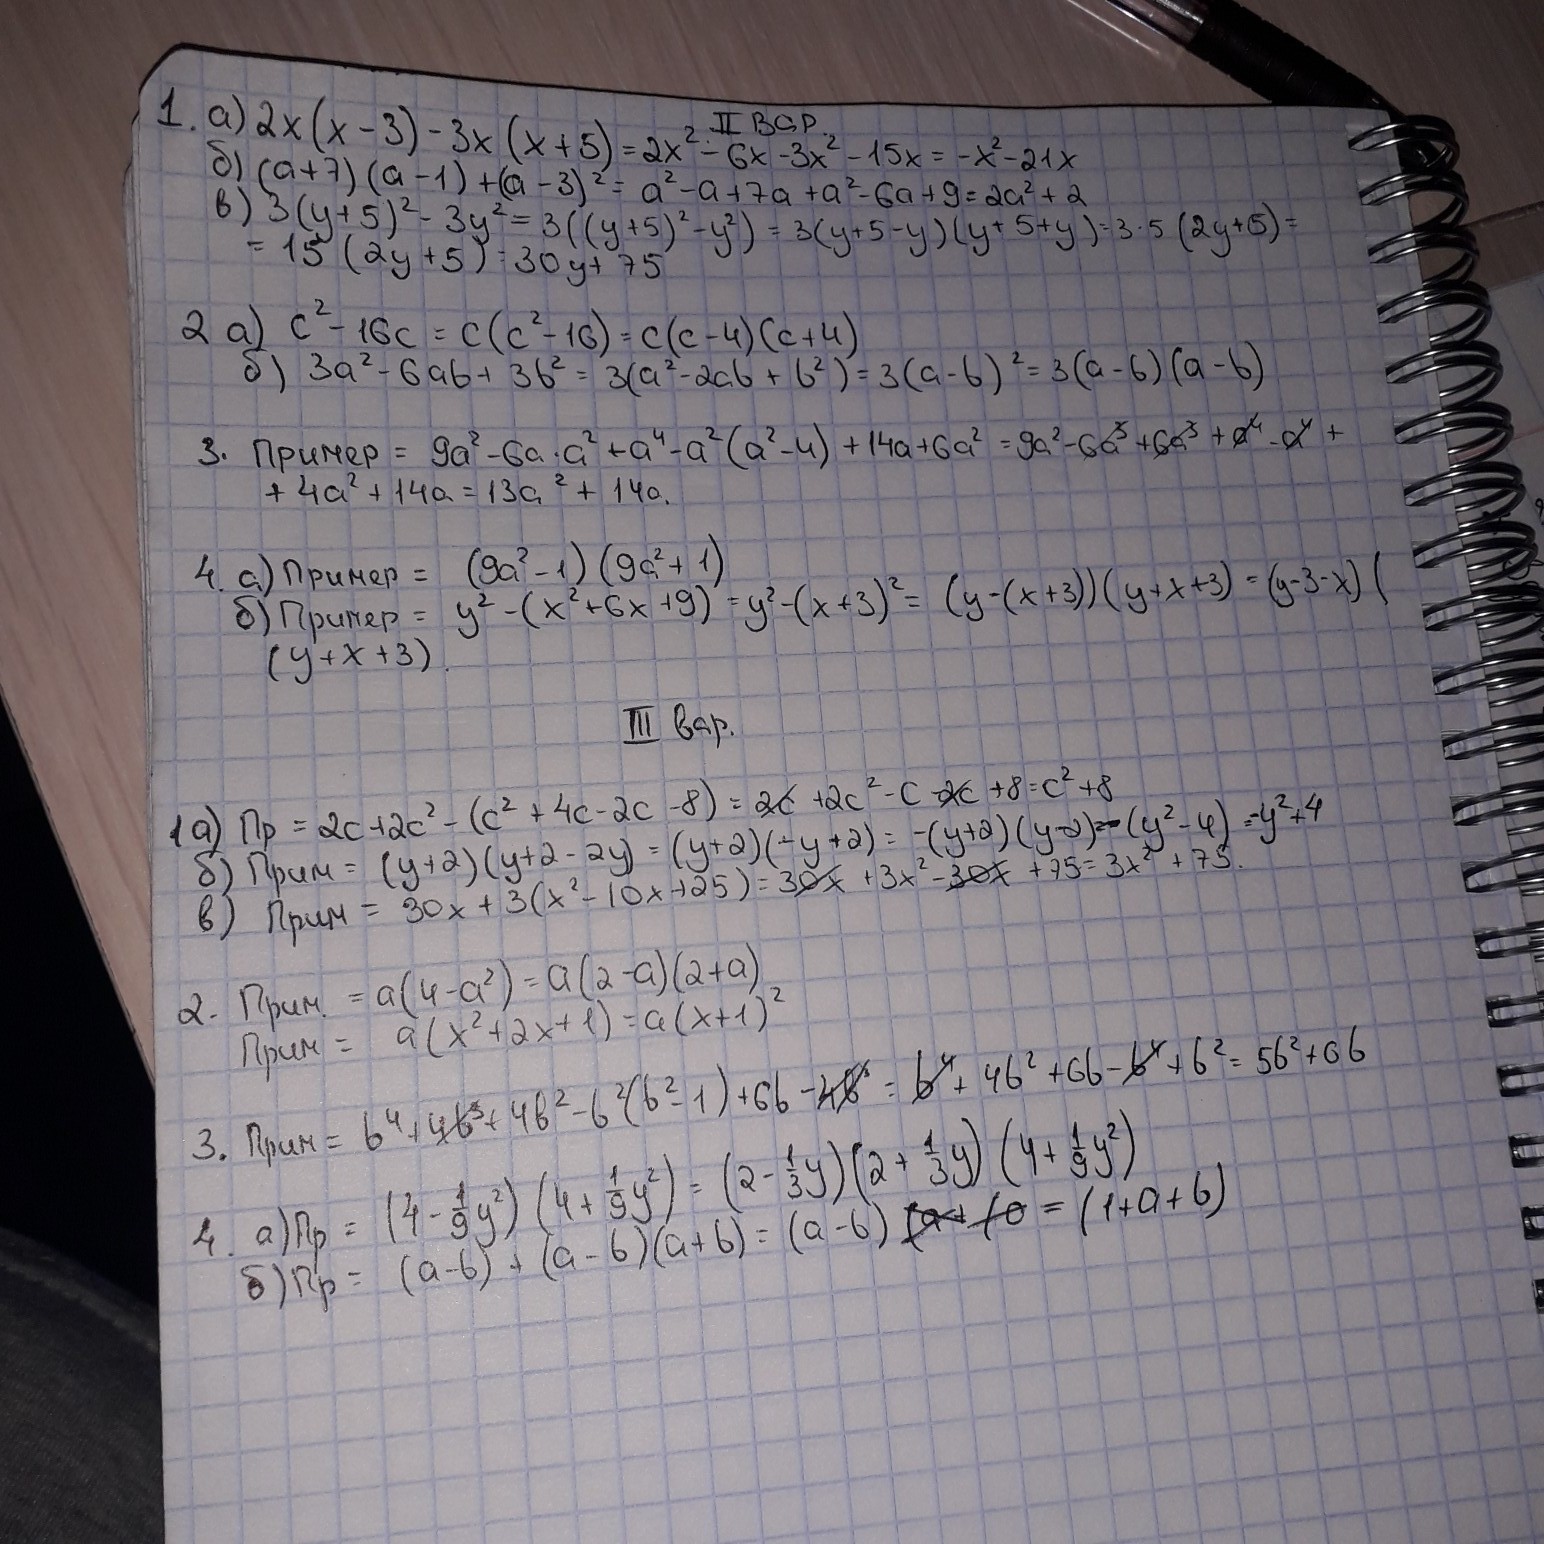 II вар.
1. а) 2x(x-3)-3x(x+5)=2x²-6x-3x²-15x=-x²-21x
б) (a+7)(a-1)+(a-3)²=a²-a+7a+a²-6a+9=2a²+2
в) 3(y+5)²-3y²=3((y+5)²-y²)=3(y+5-y)(y+5+y)=3·5(2y+5)=
=15(2y+5)=30y+75
2 а) c²-16c=c(c²-16)=c(c-4)(c+4)
б) 3a²-6ab+3b²=3(a²-2ab+b²)=3(a-b)²=3(a-b)(a-b)
3. Пример = 9a²-6a·a²+a⁴-a²(a²-4)+14a+6a²=9a²-6a³+6a³+a⁴-a⁴+
+4a²+14a=13a²+14a.
4. а) Пример = (9a²-1)(9a²+1)
б) Пример = y²-(x²+6x+9)=y²-(x+3)²=(y-(x+3))(y+x+3)=(y-3-x)(
(y+x+3).
III вар.
1а) Пр = 2c+2c²-(c²+4c-2c-8)=2c+2c²-c-2c+8=c²+8
б) Прим = (y+2)(y+2-2y)=(y+2)(-y+2)=-(y+2)(y-2)=-(y²-4)=-y²+4
в) Прим = 30x+3(x²-10x+25)=30x+3x²-30x+75=3x²+75.
2. Прим. = a(4-a²)=a(2-a)(2+a)
Прим = a(x²+2x+1)=a(x+1)²
3. Прим = b⁴+4b³+4b²-b²(b²-1)+6b-4b³=b⁴+4b²+6b-b⁴+b²=5b²+6b
4. а) Пр = (4-1/9y²)(4+1/9y²)=(2-1/3y)(2+1/3y)(4+1/9y²)
б) Пр = (a-b)+(a-b)(a+b)=(a-b) =(1+a+b)